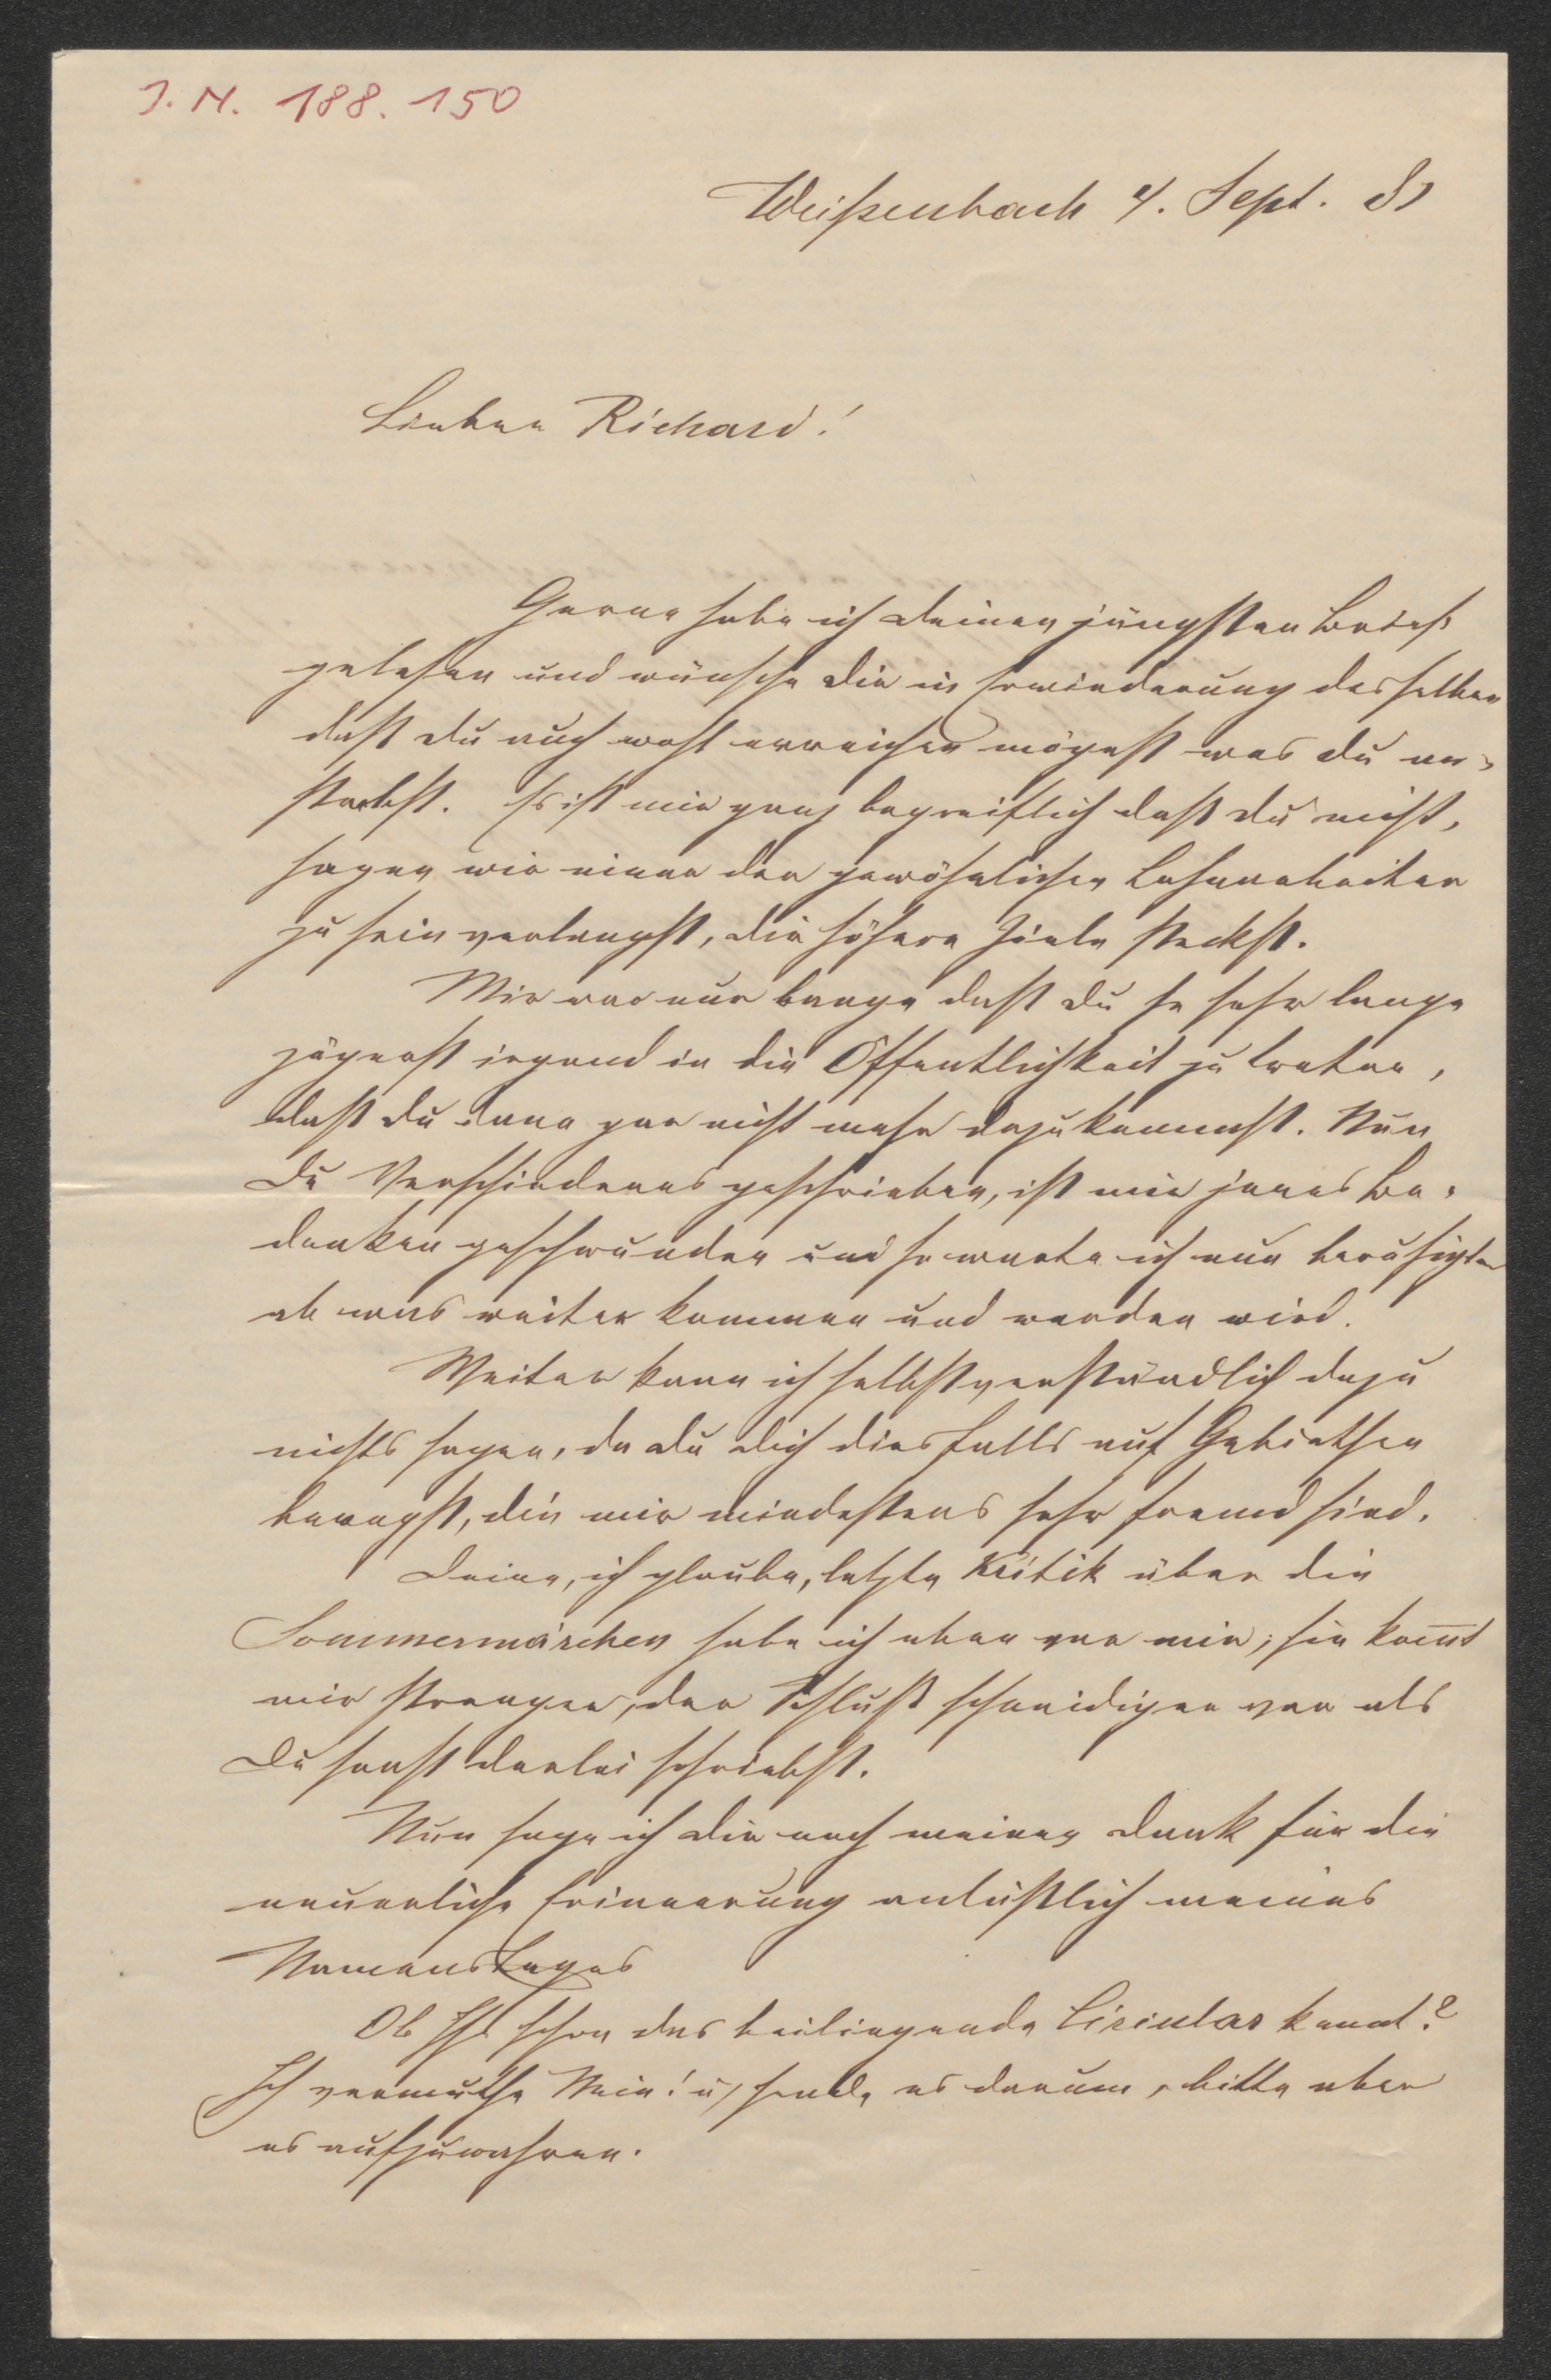 J. N. 188. 150
Weißenbach 4. Sept. 81
Lieber Richard!
Gerne habe ich deinen jüngsten Brief
gelesen und wünsche dir in Erwiederung desselben
daß du auch wohl erreichen mögest was du an-
strebst. Es ist mir ganz begreiflich daß du nicht,
sagen wir einer der gewöhnlichen Lohnarbeiter
zu sein verlangst, dir höhere Ziele steckst.
Mir war nur bange daß du so sehr lange
zögerst irgend in die Öffentlichkeit zu treten,
daß du dann gar nicht mehr dazu kommest. Nun
du Verschiedenes geschrieben, ist mir jenes Be-
denken geschwunden und so warte ich nun beruhigter
ab was weiter kommen und werden wird.
Weiter kann ich selbstverständlich dazu
nichts sagen, da du dich diesfalls auf Gebiethen
bewegst, die mir mindestens sehr fremd sind.
Deine, ich glaube, letzte Kritik über die
Sommermärchen habe ich eben vor mir; sie kom̄t
mir strenger, der Schluß schneidiger vor als
du sonst derlei schriebst.
Nun sage ich dir noch meinen Dank für die
neuerliche Erinnerung anläßlich meines
Namenstages
Ob Ihr schon das beiliegende Circular kennt?
Ich vermuthe Nein! u. sende es darum, bitte aber
es aufzuwahren.